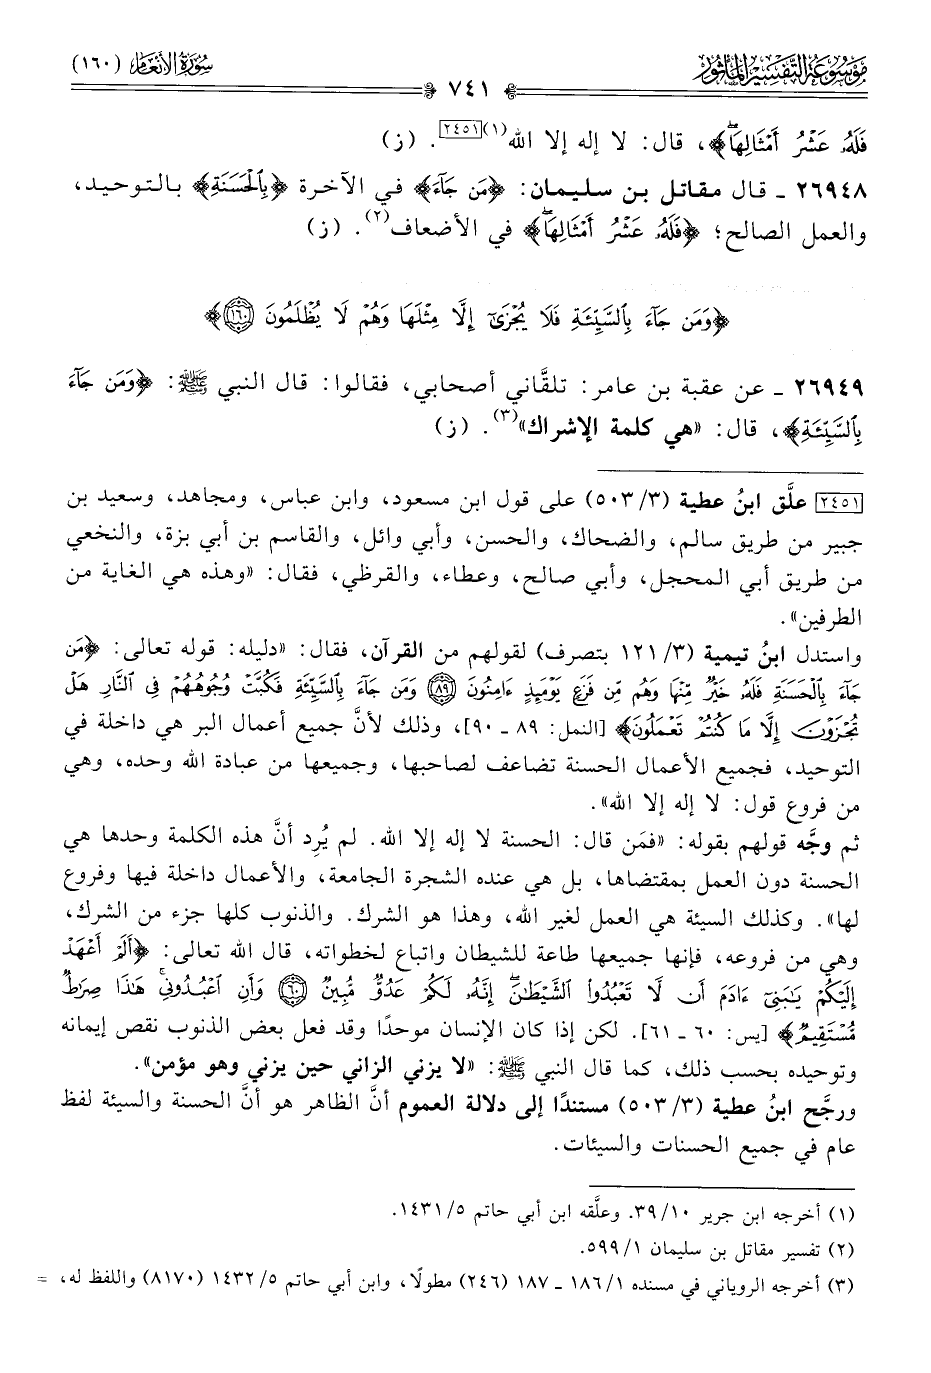 مَوْسُوعَة التَّفْسِيرِ المَأْثُور
سُورَةُ الأَنْعَام (١٦٠)
٧٤١
فَلَهُۥ عَشْرُ أَمْثَالِهَاۖ﴾، قال: لا إله إلا الله(١)[٢٤٥١]. (ز)
٢٦٩٤٨ ـ قال مقاتل بن سليمان: ﴿مَن جَآءَ﴾ في الآخرة ﴿بِٱلْحَسَنَةِ﴾ بالتوحيد،
والعمل الصالح؛ ﴿فَلَهُۥ عَشْرُ أَمْثَالِهَاۖ﴾ في الأضعاف(٢). (ز)
﴿وَمَن جَآءَ بِٱلسَّيِّئَةِ فَلَا يُجْزَىٰٓ إِلَّا مِثْلَهَا وَهُمْ لَا يُظْلَمُونَ ۝١٦٠﴾
٢٦٩٤٩ ـ عن عقبة بن عامر: تلقَّاني أصحابي، فقالوا: قال النبي ﷺ: ﴿وَمَن جَآءَ
بِٱلسَّيِّئَةِ﴾، قال: «هي كلمة الإشراك»(٣). (ز)
[٢٤٥١] علَّق ابنُ عطية (٥٠٣/٣) على قول ابن مسعود، وابن عباس، ومجاهد، وسعيد بن
جبير من طريق سالم، والضحاك، والحسن، وأبي وائل، والقاسم بن أبي بزة، والنخعي
من طريق أبي المحجل، وأبي صالح، وعطاء، والقرظي، فقال: «وهذه هي الغاية من
الطرفين».
واستدل ابنُ تيمية (١٢١/٣ بتصرف) لقولهم من القرآن، فقال: «دليله: قوله تعالى: ﴿مَن
جَآءَ بِٱلْحَسَنَةِ فَلَهُۥ خَيْرٌ مِّنْهَا وَهُم مِّن فَزَعٍ يَوْمَئِذٍ ءَامِنُونَ ۝٨٩ وَمَن جَآءَ بِٱلسَّيِّئَةِ فَكُبَّتْ وُجُوهُهُمْ فِى ٱلنَّارِ هَلْ
تُجْزَوْنَ إِلَّا مَا كُنتُمْ تَعْمَلُونَ﴾ [النمل: ٨٩ ـ ٩٠]، وذلك لأنَّ جميع أعمال البر هي داخلة في
التوحيد، فجميع الأعمال الحسنة تضاعف لصاحبها، وجميعها من عبادة الله وحده، وهي
من فروع قول: لا إله إلا الله».
ثم وجَّه قولهم بقوله: «فمَن قال: الحسنة لا إله إلا الله. لم يُرِد أنَّ هذه الكلمة وحدها هي
الحسنة دون العمل بمقتضاها، بل هي عنده الشجرة الجامعة، والأعمال داخلة فيها وفروع
لها». وكذلك السيئة هي العمل لغير الله، وهذا هو الشرك. والذنوب كلها جزء من الشرك،
وهي من فروعه، فإنها جميعها طاعة للشيطان واتباع لخطواته، قال الله تعالى: ﴿أَلَمْ أَعْهَدْ
إِلَيْكُمْ يَٰبَنِىٓ ءَادَمَ أَن لَّا تَعْبُدُوا۟ ٱلشَّيْطَٰنَۖ إِنَّهُۥ لَكُمْ عَدُوٌّ مُّبِينٌ ۝٦٠ وَأَنِ ٱعْبُدُونِىۚ هَٰذَا صِرَٰطٌ
مُّسْتَقِيمٌ﴾ [يس: ٦٠ ـ ٦١]. لكن إذا كان الإنسان موحدًا وقد فعل بعض الذنوب نقص إيمانه
وتوحيده بحسب ذلك، كما قال النبي ﷺ: «لا يزني الزاني حين يزني وهو مؤمن».
ورجَّح ابنُ عطية (٥٠٣/٣) مستندًا إلى دلالة العموم أنَّ الظاهر هو أنَّ الحسنة والسيئة لفظ
عام في جميع الحسنات والسيئات.
(١) أخرجه ابن جرير ٣٩/١٠. وعلَّقه ابن أبي حاتم ١٤٣١/٥.
(٢) تفسير مقاتل بن سليمان ٥٩٩/١.
(٣) أخرجه الروياني في مسنده ١٨٦/١ ـ ١٨٧ (٢٤٦) مطولًا، وابن أبي حاتم ١٤٣٢/٥ (٨١٧٠) واللفظ له، =